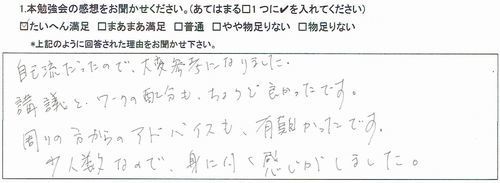 1.本勉強会の感想をお聞かせください。(あてはまる□1つに✔を入れてください)
☑たいへん満足 □まあまあ満足 □普通 □やや物足りない □物足りない
*上記のように回答された理由をお聞かせ下さい。
自己流だったので、大変参考になりました。
講議と、ワークの配分も、ちょうど良かったです。
周りの方からのアドバイスも、有難かったです。
少人数なので、身に付く感じがしました。